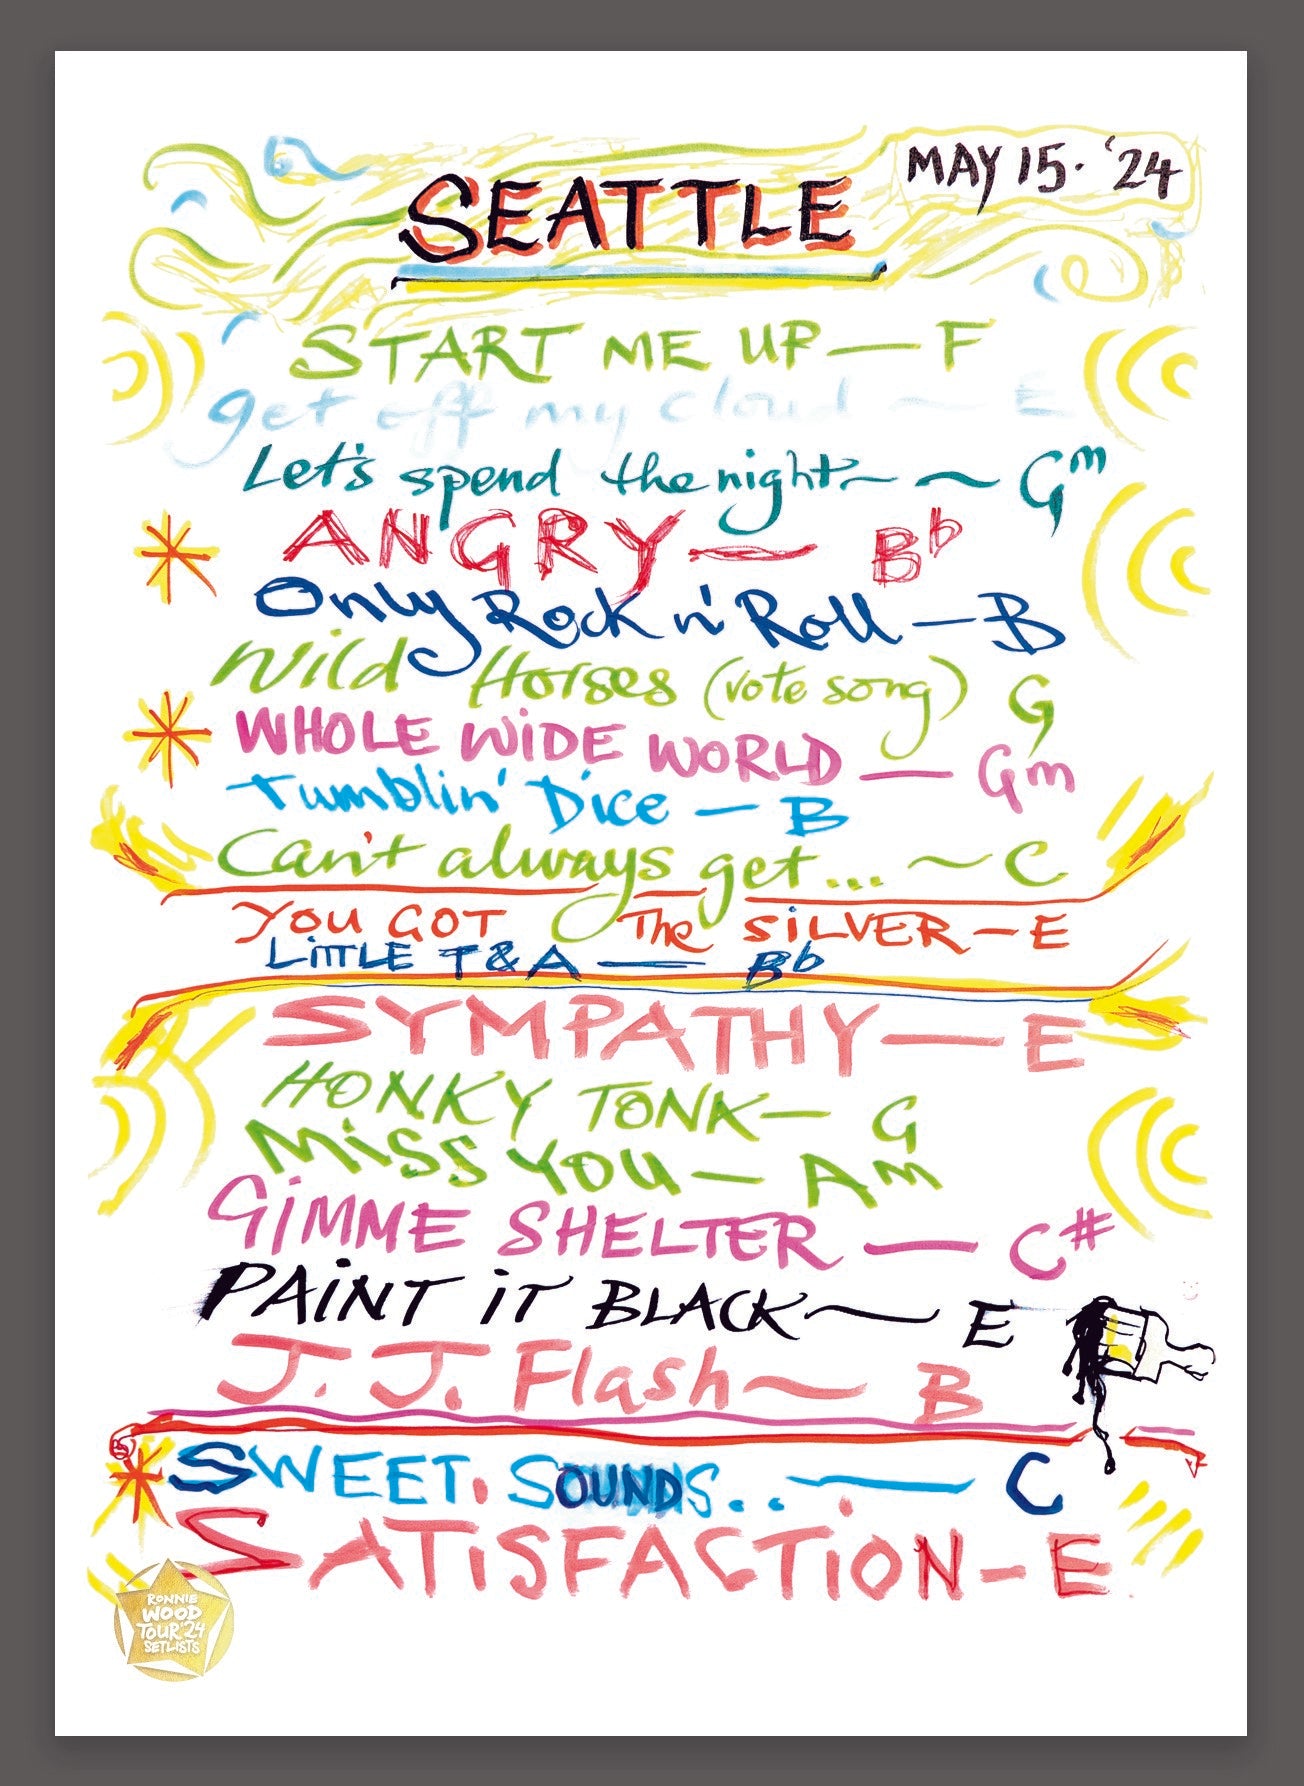 MAY 15. '24
SEATTLE
START ME UP — F
get off my cloud ~ E
Let's spend the night ~ ~ Gm
ANGRY — Bb
Only Rock n' Roll — B
Wild Horses (vote song) G
WHOLE WIDE WORLD — Gm
Tumblin' Dice — B
Can't always get... ~ C
YOU GOT The SiLVER — E
LiTTLE T & A — Bb
SYMPATHY — E
HONKY TONK — G
MiSS YOU — Am
GiMME SHELTER — C#
PAiNT iT BLACK ~ E
J. J. Flash ~ B
SWEET. SOUNDS.. — C
SATiSFACTiON - E
RONNIE
WOOD
TOUR '24
SETLISTS